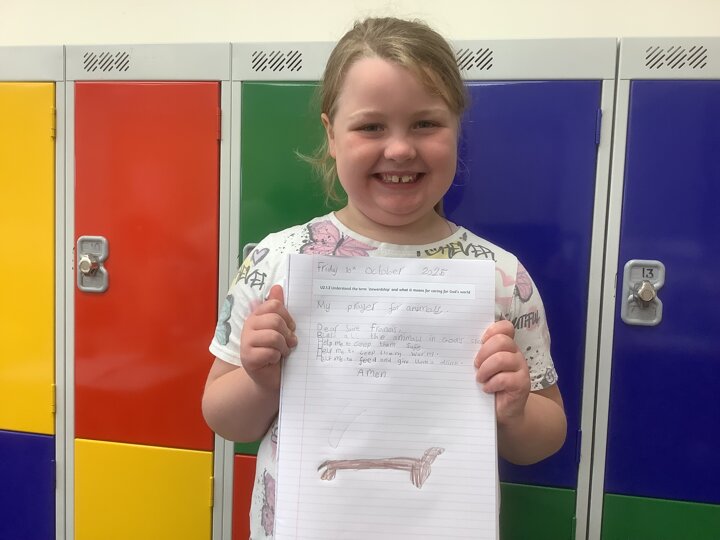 Friday 10th October 2025
U2.1.3 Understand the term 'stewardship' and what it means for caring for God's world
My prayer for animals.
Dear Sint Francis,
Bless all the animals in Gods
Help me to ceep them safe
Help me to ceep them warm.
Help me to feed and give them a
Amen
FOREVER
13